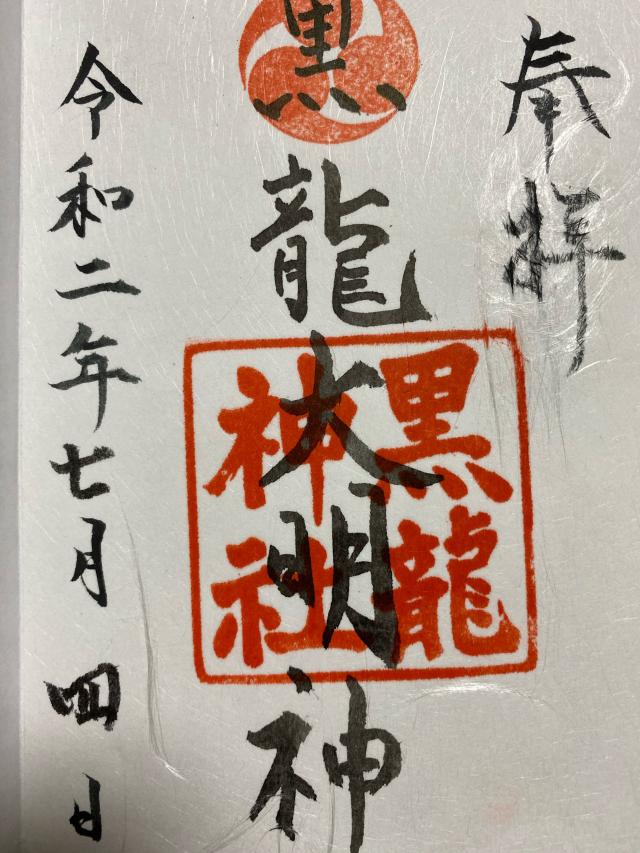 奉拝
黒龍大明神
黒龍
神社
令和二年七月四日